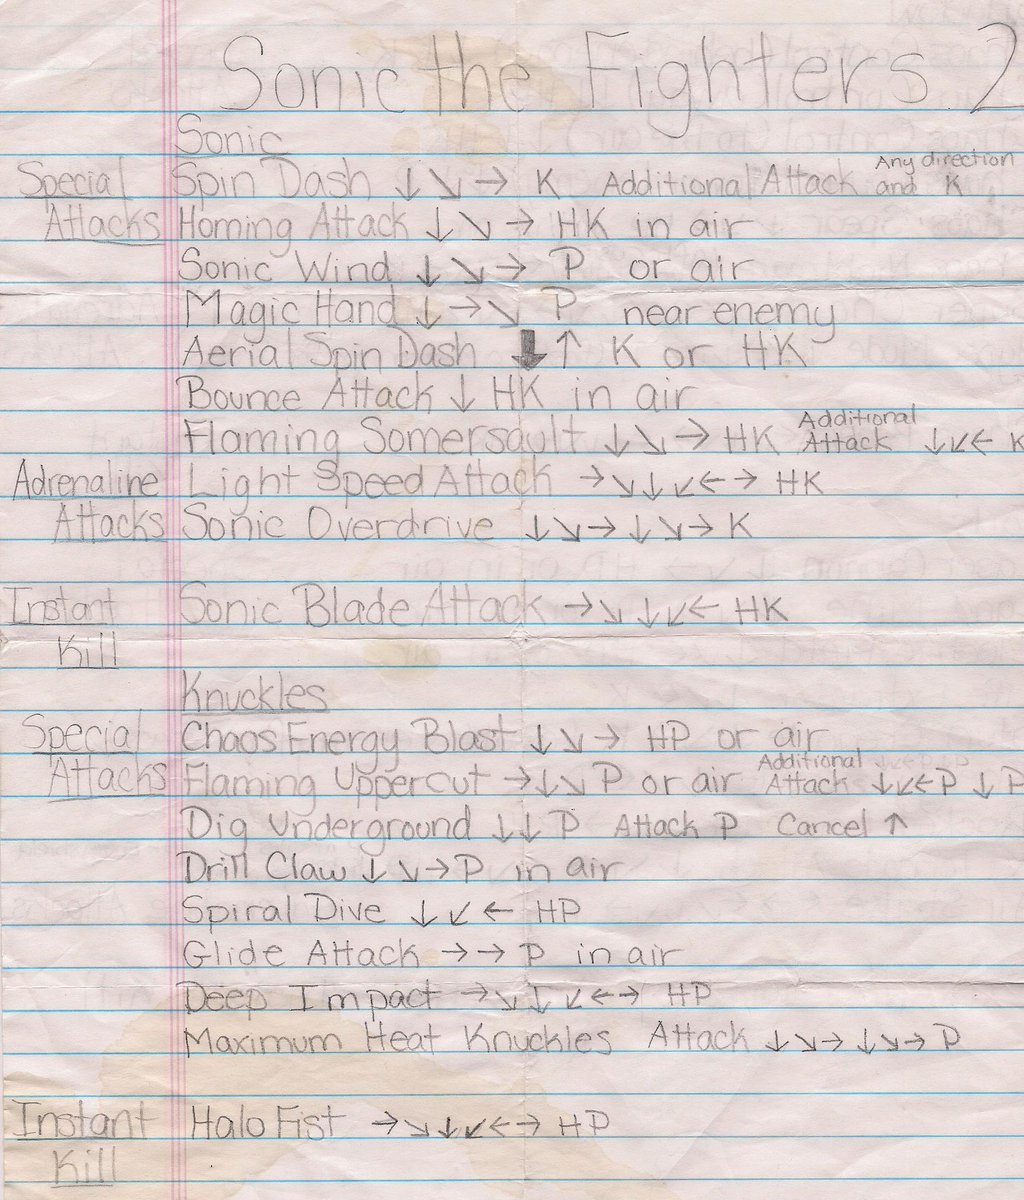 Sonic the Fighters 2
Sonic
Special Spin Dash ↓ ↘ → K Additional Attack Any direction and K
Attacks Homing Attack ↓ ↘ → HK in air
Sonic Wind ↓ ↘ → P or air
Magic Hand ↓ → ↘ P near enemy
Aerial Spin Dash ⬇ ↑ K or HK
Bounce Attack ↓ HK in air
Flaming Somersault ↓ ↘ → HK Additional Attack ↓ ↙ ← K
Adrenaline Light Speed Attack → ↘ ↓ ↙ ← → HK
Attacks Sonic Overdrive ↓ ↘ → ↓ ↘ → K
Instant Sonic Blade Attack → ↘ ↓ ↙ ← HK
Kill
Knuckles
Special Chaos Energy Blast ↓ ↘ → HP or air
Attacks Flaming Uppercut → ↓ ↘ P or air Additional Attack ↓ ↙ ← P ↓ P
Dig Underground ↓ ↓ P Attack P Cancel ↑
Drill Claw ↓ ↘ → P in air
Spiral Dive ↓ ↙ ← HP
Glide Attack → → P in air
Deep Impact → ↘ ↓ ↙ ← → HP
Maximum Heat Knuckles Attack ↓ ↘ → ↓ ↘ → P
Instant Halo Fist → ↘ ↓ ↙ ← → HP
Kill